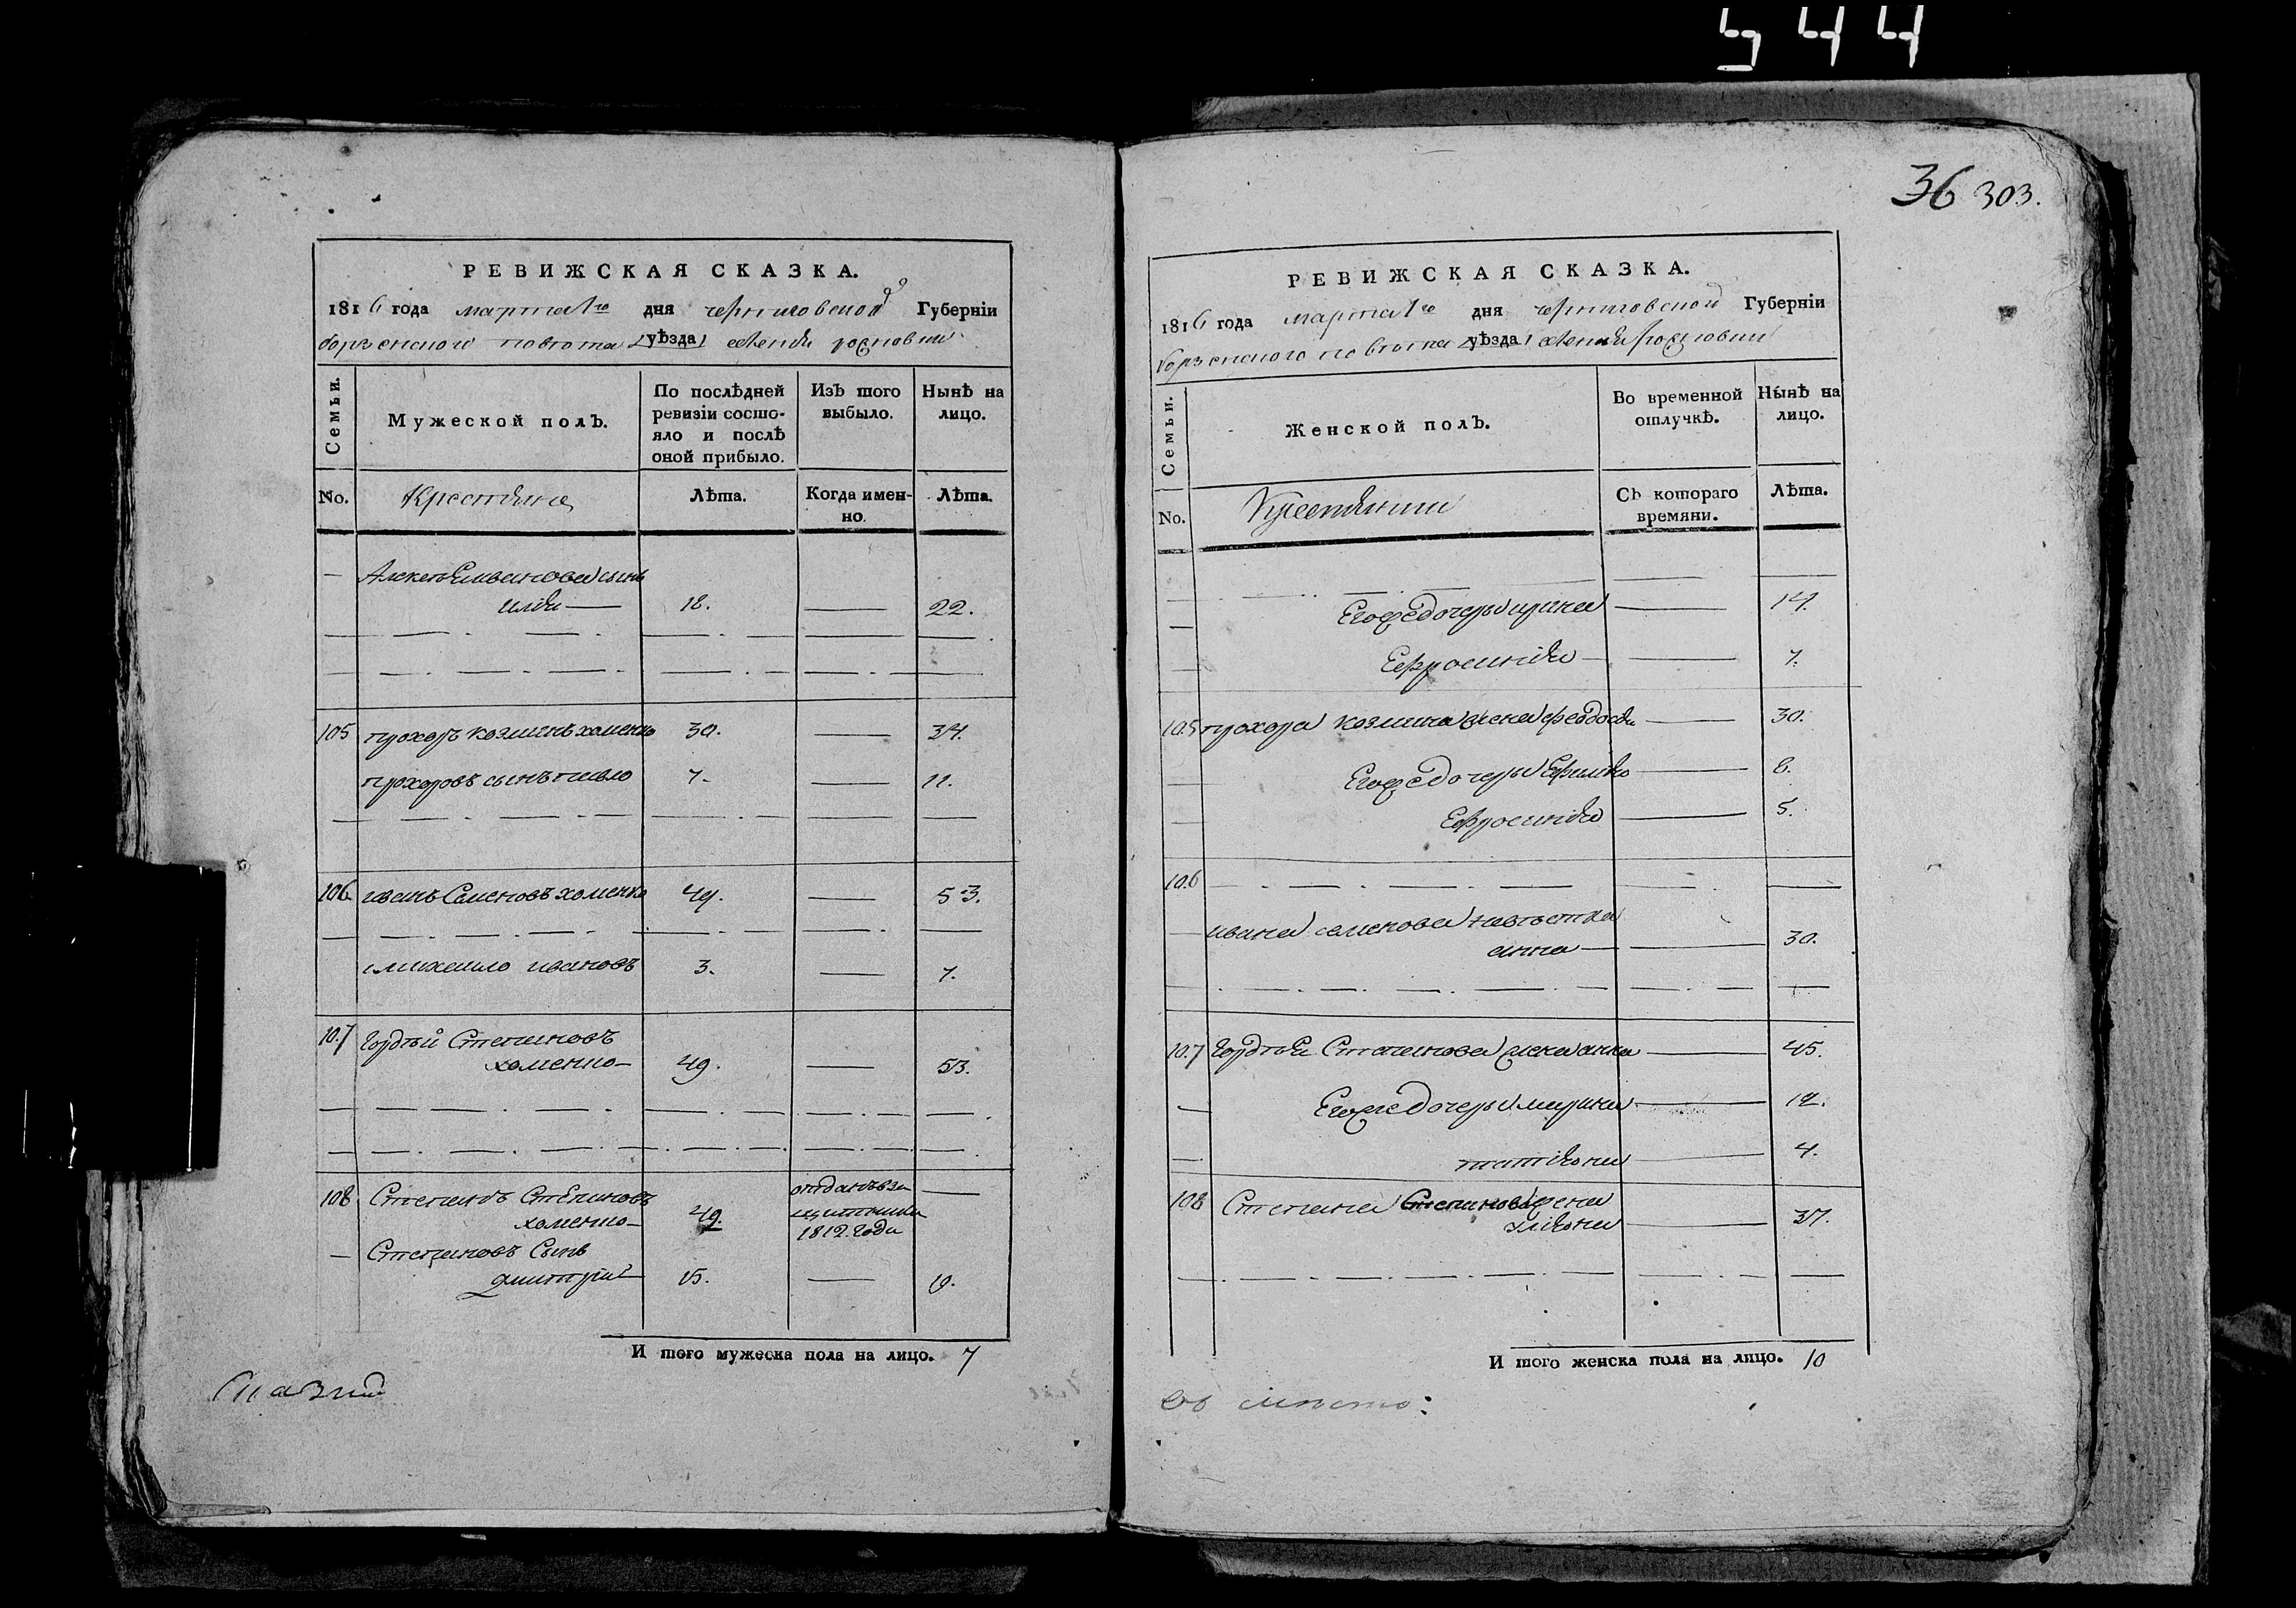 544
36 303.
РЕВИЖСКАЯ СКАЗКА.
1816 года марта 1го дня черниговской Губерніи
борзенского повета уѣзда
Семьи.
Мужеской полЪ.
По послѣдней ревизіи состо-
яло и послѣ оной прибыло.
ИзЪ того выбыло.
Нынѣ на лицо.
No. Крестяне Лѣта. Когда имен-но. Лѣта.
сынъ
илія 18. 22.
105 прохоръ козминъ хоменко 30. 34.
прохоровъ сынъ павло 7. 11.
106. иванъ Семеновъ хоменко 49. 53.
михаило ивановъ 3. 7.
107 Гордѣй Степановъ
хоменко 49. 53.
108 Степанъ Степановъ отданъ въ
хоменко 49. 1812 года
Степановъ Сынъ
дмитрій 15. 19.
И того мужеска пола на лицо. 7
РЕВИЖСКАЯ СКАЗКА.
1816 года марта 1го дня черниговской Губерніи
борзенского повета уѣзда
Семьи.
Женской полЪ.
Во временной отлучкѣ.
Нынѣ на лицо.
No. Крестянки СЪ котораго времяни. Лѣта.
Егоже дочеры ирина 14.
Ефросинія 7.
105 прохора козмина жена феодосія 30.
Егоже дочеры Ефимія 8.
Ефросинія 5.
106
ивана семенова невѣстка
анна 30.
107 Гордѣя Степанова жена анна 45.
Егоже дочеры марина 12.
татіяна 4.
108 Степана Степанова жена
уліяна 37.
И того женска пола на лицо. 10